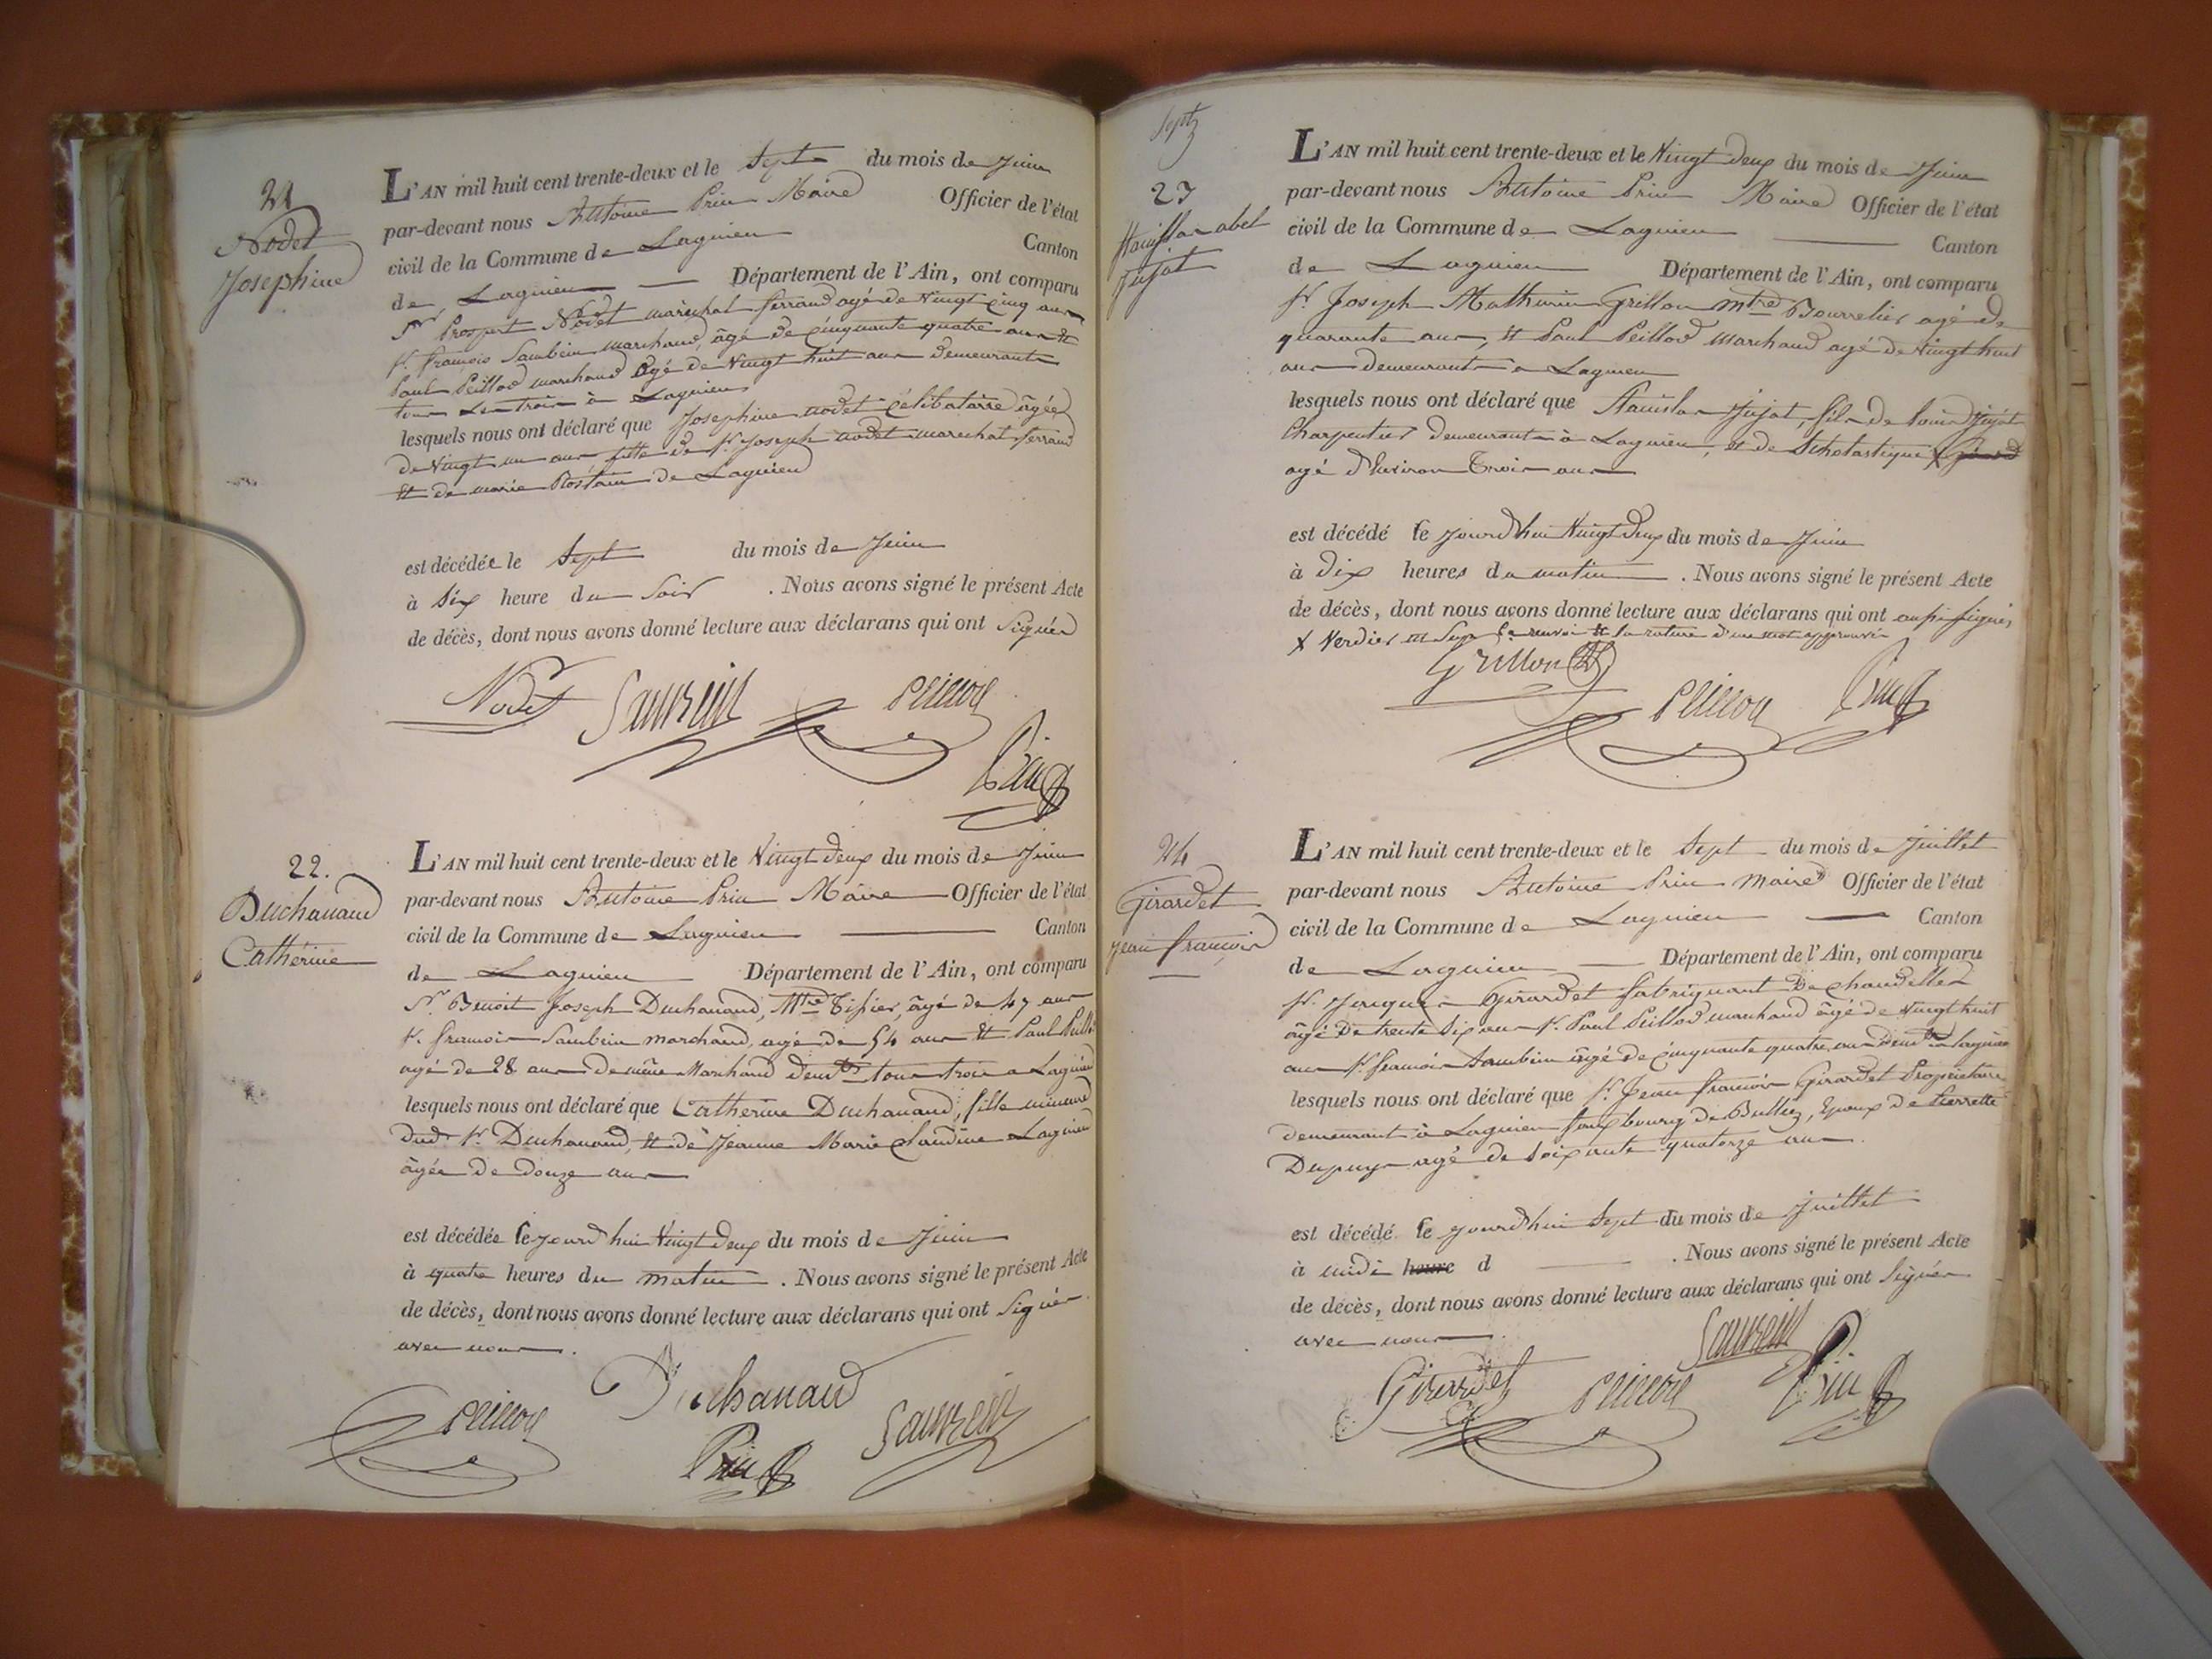 21
Nodet
Josephine
L'AN mil huit cent trente-deux et le Sept du mois de Juin
par-devant nous Antoine Prin Maire Officier de l'état
civil de la Commune de Lagnieu Canton
de Lagnieu Département de l'Ain, ont comparu
Sr Prospert Nodet marechal ferrand agé de Vingt Cinq ans
Sr. françois Sambin marchand, âgé de cinquante quatre ans et
Paul Peillod marchand Agé de Vingt huit ans demeurants
tous Les trois à Lagnieu
lesquels nous ont déclaré que Josephine nodet célibatairre âgée
de Vingt un ans fille de Sr. Joseph nodet marechal ferrand
et de marie Rostain de Lagnieu
est décédée le Sept du mois de Juin
à Six heure du Soir . Nous avons signé le présent Acte
de décès, dont nous avons donné lecture aux déclarans qui ont Signés
Nodet Peillod
Prin
22.
Duchanaud
Cathérine
L'AN mil huit cent trente-deux et le Vingt deux du mois de Juin
par-devant nous Antoine Prin Maire Officier de l'état
civil de la Commune de Lagnieu Canton
de Lagnieu Département de l'Ain, ont comparu
Sr. Benoit Joseph Duchanaud, Mtre Tissier, âgé de 47 ans
Sr. françois Sambin marchand, agé de 54 ans et Paul Peillod
agé de 28 ans de même Marchand demts tous trois a Lagnieu
lesquels nous ont déclaré que Catherine Duchanaud, fille mineure
dud. Sr. Duchanaud, et de Jeanne Marie Claudine Lagnieu
âgée de douze ans
est décédée le jourd'hui Vingt deux du mois de Juin
à quatre heures du matin . Nous avons signé le présent Acte
de décès, dont nous avons donné lecture aux déclarans qui ont Signés
avec nous.
Peillod Duchanaud
Prin
Sept
23
Stanislas abel
Jujat
L'AN mil huit cent trente-deux et le Vingt deux du mois de Juin
par-devant nous Antoine Prin Maire Officier de l'état
civil de la Commune de Lagnieu Canton
de Lagnieu Département de l'Ain, ont comparu
Sr. Joseph Mathurin Grillon mtre Bourrelier agé de
quarante ans, et Paul Peillod Marchand agé de Vingt huit
ans demeurants a Lagnieu
lesquels nous ont déclaré que Stanislas Jujat, fils de Louis Jujat
Charpentier demeurant à Lagnieu, et de Scholastique X
agé d'Environ Trois ans
est décédé le jourd'hui Vingt deux du mois de Juin
à dix heures du matin . Nous avons signé le présent Acte
de décès, dont nous avons donné lecture aux déclarans qui ont aussi signés
X Verdier le renvoi et la rature d'un mot approuvés
Grillon
Peillod Prin
24
Girardet
jean françois
L'AN mil huit cent trente-deux et le Sept du mois de Juillet
par-devant nous Antoine Prin Maire Officier de l'état
civil de la Commune de Lagnieu Canton
de Lagnieu Département de l'Ain, ont comparu
Sr. Jacques Girardet fabriquant De chandelles
âgé De trente Six ans Sr. Paul Peillod marchand âgé de Vingt huit
ans Sr. françois Sambin âgé de cinquante quatre ans demts a Lagnieu
lesquels nous ont déclaré que Sr. Jean françois Girardet Propriétaire
demeurant à Lagnieu fauxbourg de Bulliez, Epoux de Pierrette
Dupuy agé de soixante quatorze ans.
est décédé le jourd'hui Sept du mois de Juillet
à midi heure d . Nous avons signé le présent Acte
de décès, dont nous avons donné lecture aux déclarans qui ont Signés
avec nous.
Girardet Peillod Prin